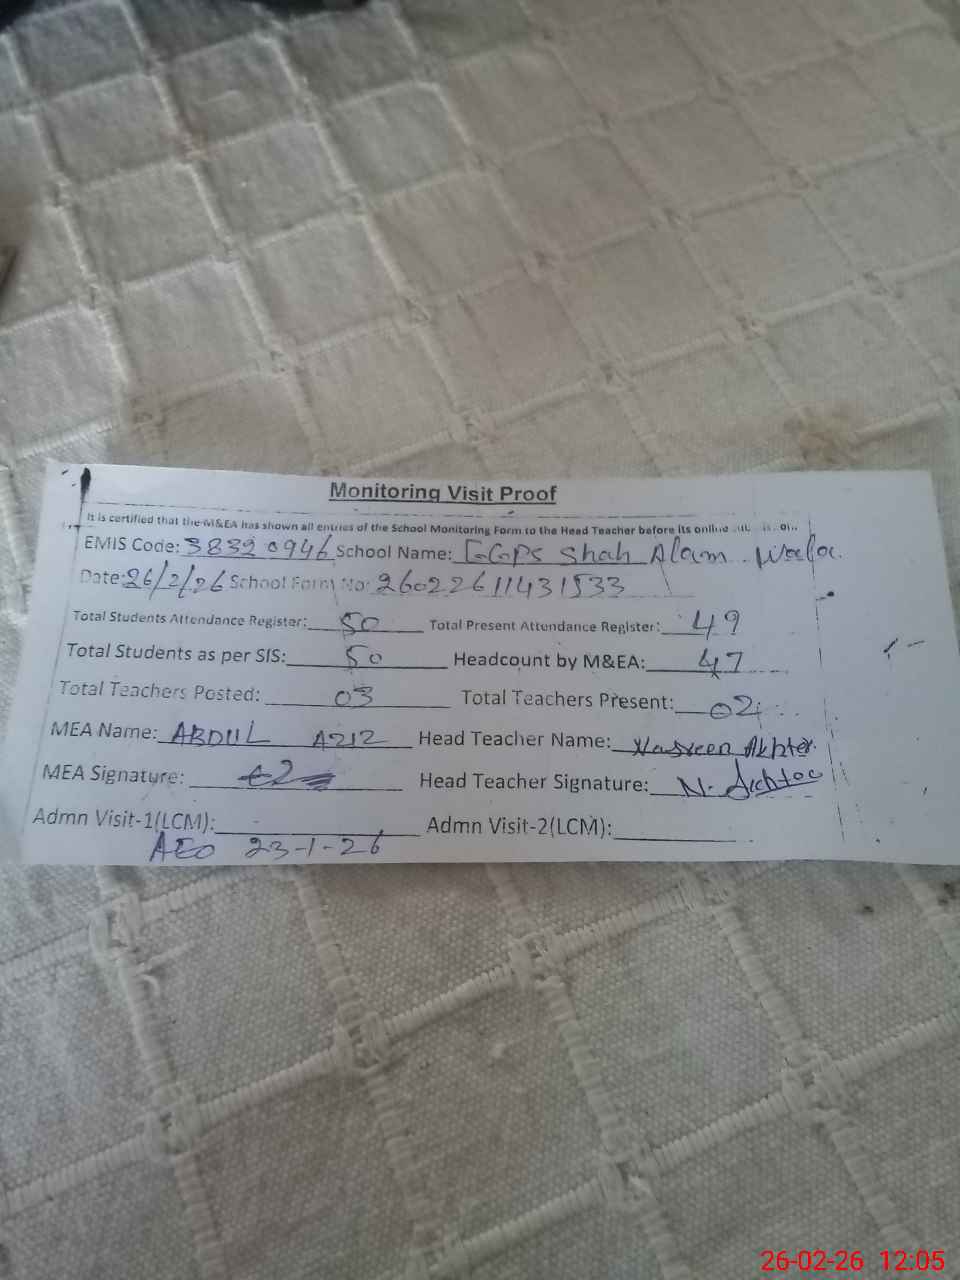 Monitoring Visit Proof
It is certified that the M&EA has shown all entries of the School Monitoring Form to the Head Teacher before its online
EMIS Code: 38320946 School Name: GGPS Shah Alam Wala.
Date: 26/2/26 School Form No: 26022611431533
Total Students Attendance Register: 50 Total Present Attendance Register: 49
Total Students as per SIS: 50 Headcount by M&EA: 47
Total Teachers Posted: 03 Total Teachers Present: 02
MEA Name: ABDUL AZIZ Head Teacher Name: Nasreen Akhter.
MEA Signature: Head Teacher Signature: N. Akhtar
Admn Visit-1(LCM): Admn Visit-2(LCM):
AEO 23-1-26
26-02-26 12:05